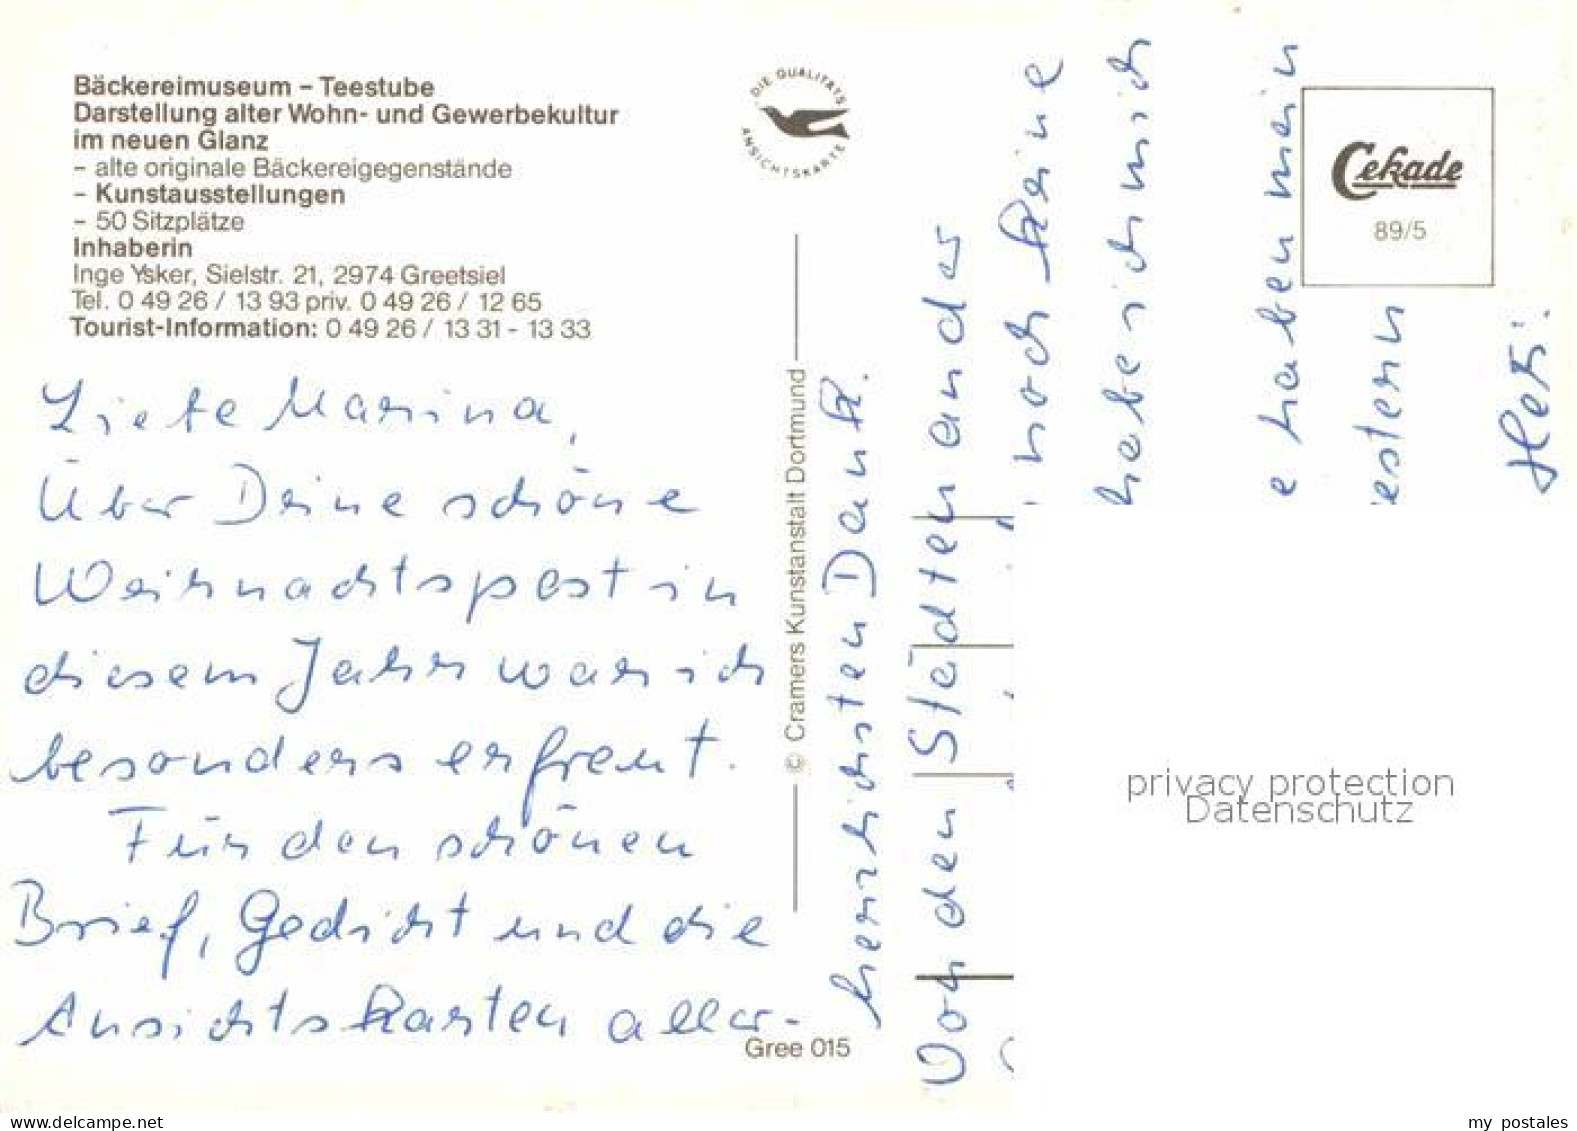 Bäckereimuseum – Teestube
Darstellung alter Wohn- und Gewerbekultur
im neuen Glanz
– alte originale Bäckereigegenstände
– Kunstausstellungen
– 50 Sitzplätze
Inhaberin
Inge Ysker, Sielstr. 21, 2974 Greetsiel
Tel. 0 49 26 / 13 93 priv. 0 49 26 / 12 65
Tourist-Information: 0 49 26 / 13 31 - 13 33
DIE QUALITÄTS
ANSICHTSKARTE
Cekade
89/5
Liebe Marina,
Über Deine schöne
Weihnachtspost in
diesem Jahr war ich
besonders erfreut.
Für den schönen
Brief, Gedicht und die
Ansichtskarten aller-
herzlichsten Dank.
Von den Städten an der
noch keine
habe ich mich
e haben mein
estern
© Cramers Kunstanstalt Dortmund
Gree 015
privacy protection
Datenschutz
my postales
www.delcampe.net